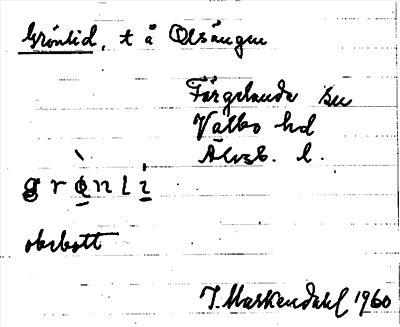 Grönlid, t å Olsängen
Färgelanda sn
Valbo hd
Älvsb. l.
grø̀nlì
obebott
J. Markendahl 1960